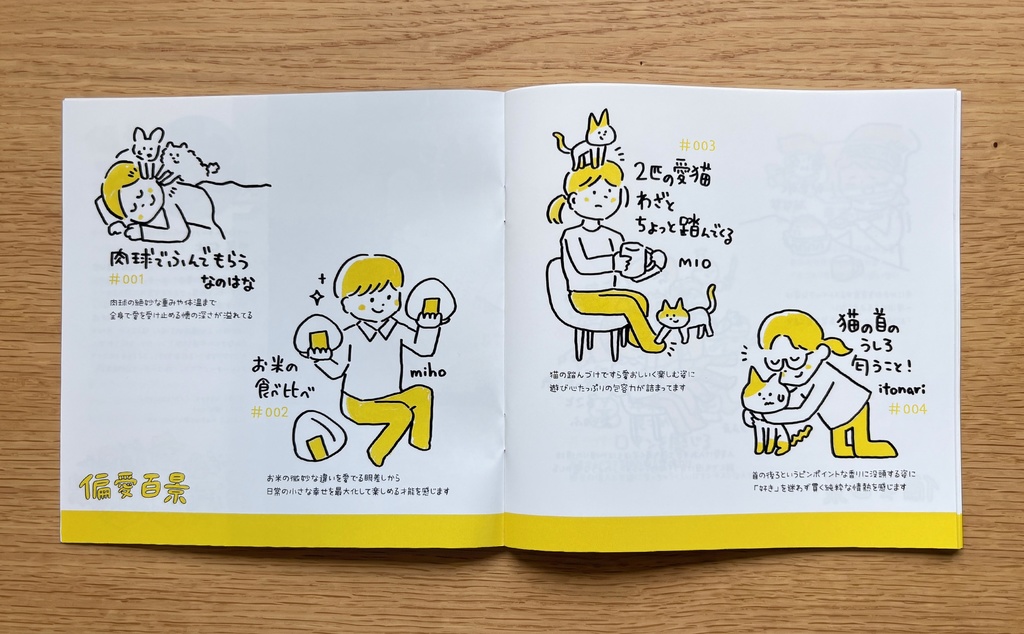 肉球でふんでもらう
なのはな
#001
肉球の絶妙な重みや体温まで
全身で愛を受け止める懐の深さが溢れてる
お米の
食べ比べ
miho
#002
お米の微妙な違いを愛でる眼差しから
日常の小さな幸せを最大化して楽しめる才能を感じます
偏愛百景
#003
2匹の愛猫
わざと
ちょっと踏んでくる
MIO
猫の踏んづけですら愛おしいく楽しむ姿に
遊び心たっぷりの包容力が詰まってます
猫の首の
うしろ
匂うこと!
itonari
#004
首の後ろというピンポイントな香りに没頭する姿に
「好き」を迷わず貫く純粋な情熱を感じます